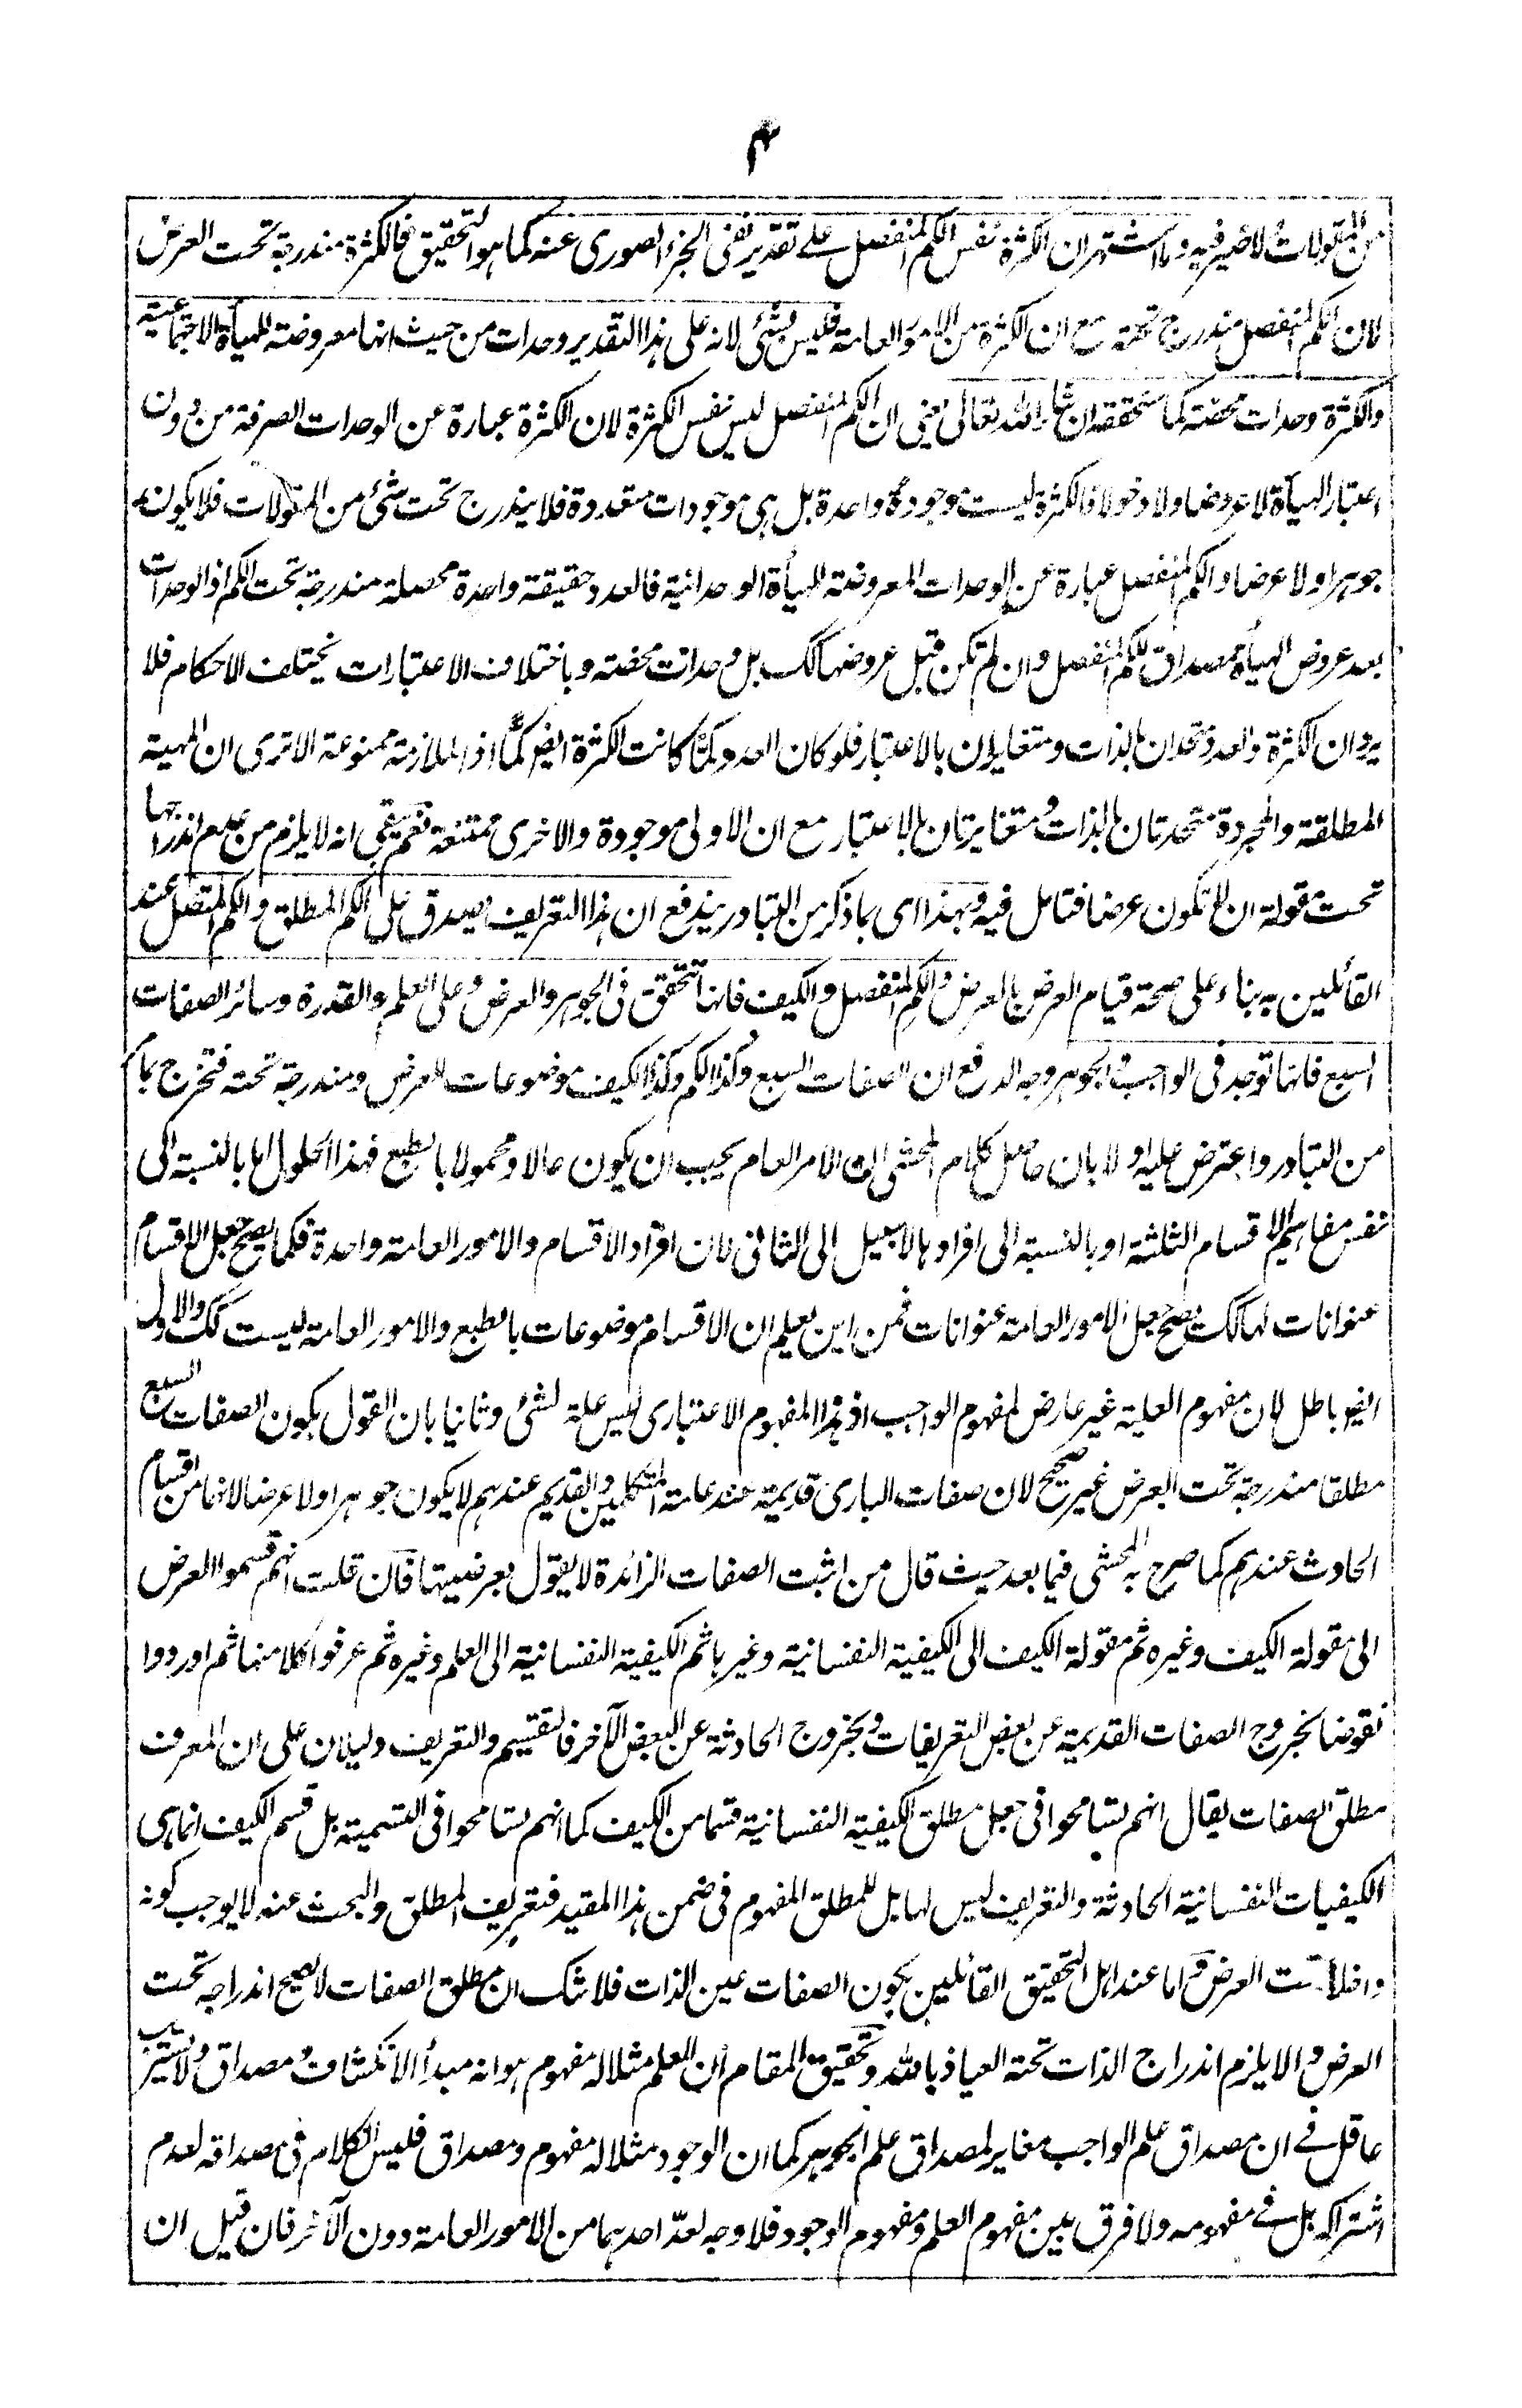 ۴
من المقولات لا ضير فيه وما اشتهر ان الكثرة نفس الكم المنفصل على تقدير نفى الجزء الصورى عنه كما هو التحقيق فالكثرة مندرجة تحت العرض
لان الكم المنفصل مندرج تحته مع ان الكثرة من الامور العامة فليس بشئ لانه على هذا التقدير وحدات من حيث انها معروضة للهيأة الاجتماعية
والكثرة وحدات محضة كما ستحققه ان شاء الله تعالى يعنى ان الكم المنفصل ليس نفس الكثرة لان الكثرة عبارة عن الوحدات الصرفة من دون
اعتبار الهيأة لا عروضا ولا دخولا فالكثرة ليست موجودة واحدة بل هى موجودات متعددة فلا يندرج تحت شئ من المقولات فلا يكون
جوهرا ولا عرضا والكم المنفصل عبارة عن الوحدات المعروضة للهيأة الوحدانية فالعدد حقيقة واحدة محصلة مندرجة تحت الكم اذ الوحدات
بعد عروض الهيأة مصداق للكم المنفصل وان لم تكن قبل عروضها كك بل وحدات محضة وباختلاف الاعتبارات يختلف الاحكام فلا
يرد ان الكثرة والعدد متحدان بالذات ومتغايران بالاعتبار فلو كان العدد كمًّا كانت الكثرة ايضا كمًّا اذ الملازمة ممنوعة الا ترى ان المهية
المطلقة والمجردة متحدتان بالذات ومتغايرتان بالاعتبار مع ان الاولى موجودة والاخرى ممتنعة نعم بقى انه لا يلزم من عدم اندراجها
تحت مقولة ان لا تكون عرضا فتامل فيه وبهذا اى بما ذكر من التبادر يندفع ان هذا التعريف يصدق على الكم المطلق والكم المتصل عند
القائلين به بناء على صحة قيام العرض بالعرض والكم المنفصل والكيف فانها تتحقق فى الجوهر والعرض وعلى العلم والقدرة وسائر الصفات
السبع فانها توجد فى الواجب والجوهر وجه الدفع ان الصفات السبع وكذا الكم وكذا الكيف موضوعات للعرض ومندرجة تحته فتخرج بما مر
من التبادر واعترض عليه اولا بان حاصل كلام المحشى ان الامر العام يجب ان يكون حالا ومحمولا بالطبع فهذا الحلول اما بالنسبة الى
نفس مفاهيم الاقسام الثلثة او بالنسبة الى افرادها لا سبيل الى الثانى لان افراد الاقسام والامور العامة واحدة فكما يصح جعل الاقسام
عنوانات لها كك يصح جعل الامور العامة عنوانات فمن اين يعلم ان الاقسام موضوعات بالطبع والامور العامة ليست كك والاول
ايضا باطل لان مفهوم العلية غير عارض لمفهوم الواجب اذ هذا المفهوم الاعتبارى ليس علة لشئ وثانيا بان القول بكون الصفات السبع
مطلقا مندرجة تحت العرض غير صحيح لان صفات البارى قديمة عند عامة المتكلمين والقديم عندهم لا يكون جوهرا ولا عرضا لانهما من اقسام
الحادث عندهم كما صرح به المحشى فيما بعد حيث قال من اثبت الصفات الزائدة لا يقول بعرضيتها فان قلت انهم قسموا العرض
الى مقولة الكيف وغيره ثم مقولة الكيف الى الكيفية النفسانية وغيرها ثم الكيفية النفسانية الى العلم وغيره ثم عرفوا كلا منها ثم اوردوا
نقوضا بخروج الصفات القديمة عن بعض التعريفات وبخروج الحادثة عن البعض الآخر فالتقسيم والتعريف دليلان على ان المعرف
مطلق الصفات يقال انهم تسامحوا فى جعل مطلق الكيفية النفسانية قسما من الكيف كما انهم تسامحوا فى التسمية بل قسم الكيف انما هى
الكيفيات النفسانية الحادثة والتعريف ليس لها بل للمطلق المفهوم فى ضمن هذا المقيد فتعريف المطلق والبحث عنه لا يوجب كونه
داخلا تحت العرض اما عند اهل التحقيق القائلين بكون الصفات عين الذات فلا شك ان مطلق الصفات لا يصح اندراجه تحت
العرض والا يلزم اندراج الذات تحته العياذ بالله وتحقيق المقام ان العلم مثلا له مفهوم هو انه مبدأ الانكشاف ومصداق ولا يستريب
عاقل فى ان مصداق علم الواجب مغاير لمصداق علم الجوهر كما ان الوجود مثلا له مفهوم ومصداق فليس الكلام فى مصداقه لعدم
اشتراكه بل فى مفهومه ولا فرق بين مفهوم العلم ومفهوم الوجود فلا وجه لعدّ احدهما من الامور العامة دون الآخر فان قيل ان